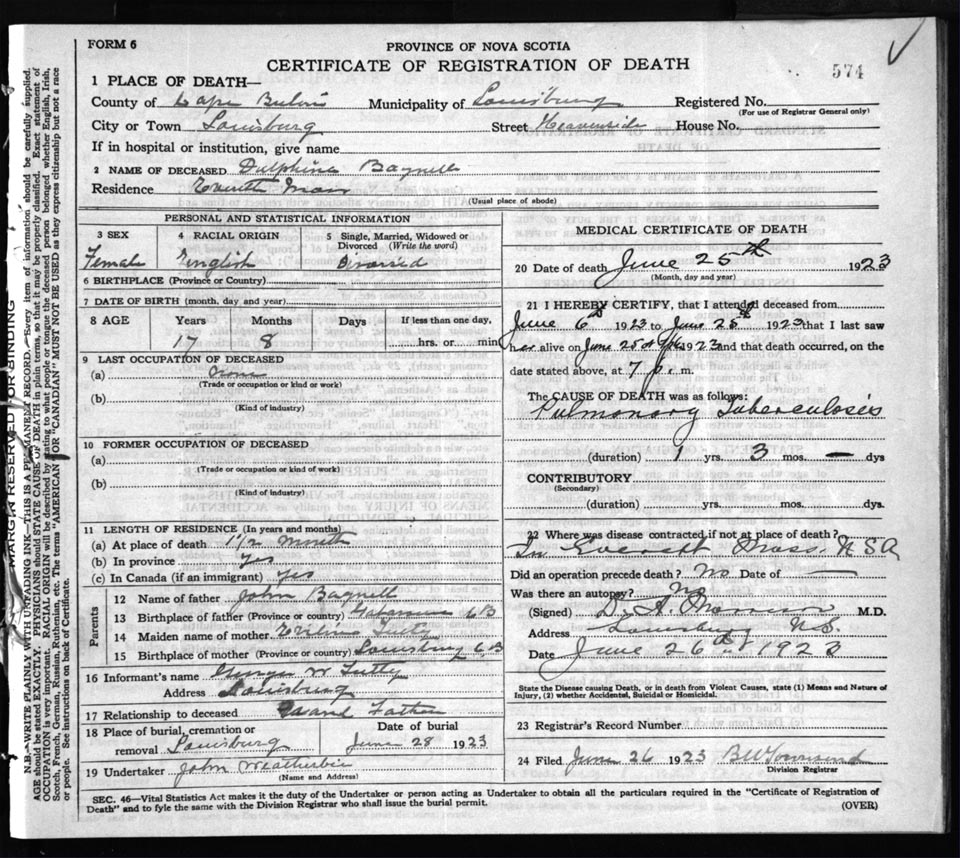 FORM 6
PROVINCE OF NOVA SCOTIA
CERTIFICATE OF REGISTRATION OF DEATH
574
1 PLACE OF DEATH—
County of Cape Breton Municipality of Louisburg Registered No.
(For use of Registrar General only)
City or Town Louisburg Street Havenside House No.
If in hospital or institution, give name
2 NAME OF DECEASED Delphina Bagnell
Residence Everett Mass
(Usual place of abode)
PERSONAL AND STATISTICAL INFORMATION
3 SEX 4 RACIAL ORIGIN 5 Single, Married, Widowed or Divorced (Write the word)
Female English
6 BIRTHPLACE (Province or Country)
7 DATE OF BIRTH (month, day and year)
8 AGE Years Months Days If less than one day,
17 8 hrs. or min
9 LAST OCCUPATION OF DECEASED
(a)
(Trade or occupation or kind or work)
(b)
(Kind of industry)
10 FORMER OCCUPATION OF DECEASED
(a)
(Trade or occupation or kind of work)
(b)
(Kind of industry)
11 LENGTH OF RESIDENCE (In years and months)
(a) At place of death 1 1/2 Month
(b) In province Yes
(c) In Canada (if an immigrant) Yes
Parents
12 Name of father John Bagnell
13 Birthplace of father (Province or country) Gabarouse CB
14 Maiden name of mother Tutty
15 Birthplace of mother (Province or country) Louisburg CB
16 Informant's name George W Tutty
Address Louisburg
17 Relationship to deceased Grand Father
18 Place of burial, cremation or removal Louisburg
Date of burial
June 28 1923
19 Undertaker John Weatherbie
(Name and Address)
MEDICAL CERTIFICATE OF DEATH
20 Date of death June 25th 1923
(Month, day and year)
21 I HEREBY CERTIFY, that I attended deceased from
June 6th 1923 to June 25th 1923 that I last saw
her alive on June 25th 1923 and that death occurred, on the
date stated above, at 7 p. m.
The CAUSE OF DEATH was as follows:
Pulmonary Tuberculosis
(duration) 1 yrs. 3 mos. — dys
CONTRIBUTORY
(Secondary)
(duration) yrs. mos. dys.
22 Where was disease contracted if not at place of death?
In Everett Mass. USA
Did an operation precede death? No Date of —
Was there an autopsy? No
(Signed) D. A. Morrison M.D.
Address Louisburg N.S.
Date June 26th 1923
State the Disease causing Death, or in death from Violent Causes, state (1) Means and Nature of
Injury, (2) whether Accidental, Suicidal or Homicidal.
23 Registrar's Record Number
24 Filed June 26 1923 B W Townsend
Division Registrar
SEC. 46—Vital Statistics Act makes it the duty of the Undertaker or person acting as Undertaker to obtain all the particulars required in the "Certificate of Registration of
Death" and to fyle the same with the Division Registrar who shall issue the burial permit.
(OVER)
MARGIN RESERVED FOR BINDING
N.B.—WRITE PLAINLY WITH UNFADING INK—THIS IS A PERMANENT RECORD.—Every item of information should be carefully supplied.
AGE should be stated EXACTLY. PHYSICIANS should STATE CAUSE OF DEATH in plain terms, so that it may be properly classified. Exact statement of
OCCUPATION is very important. RACIAL ORIGIN will be described by stating to what people or tongue the deceased person belonged whether English, Irish,
Scotch, French, German, Russian, Ruthenian, etc. The terms "AMERICAN" OR "CANADIAN" MUST NOT BE USED as they express citizenship but not a race
or people. See instructions on back of Certificate.